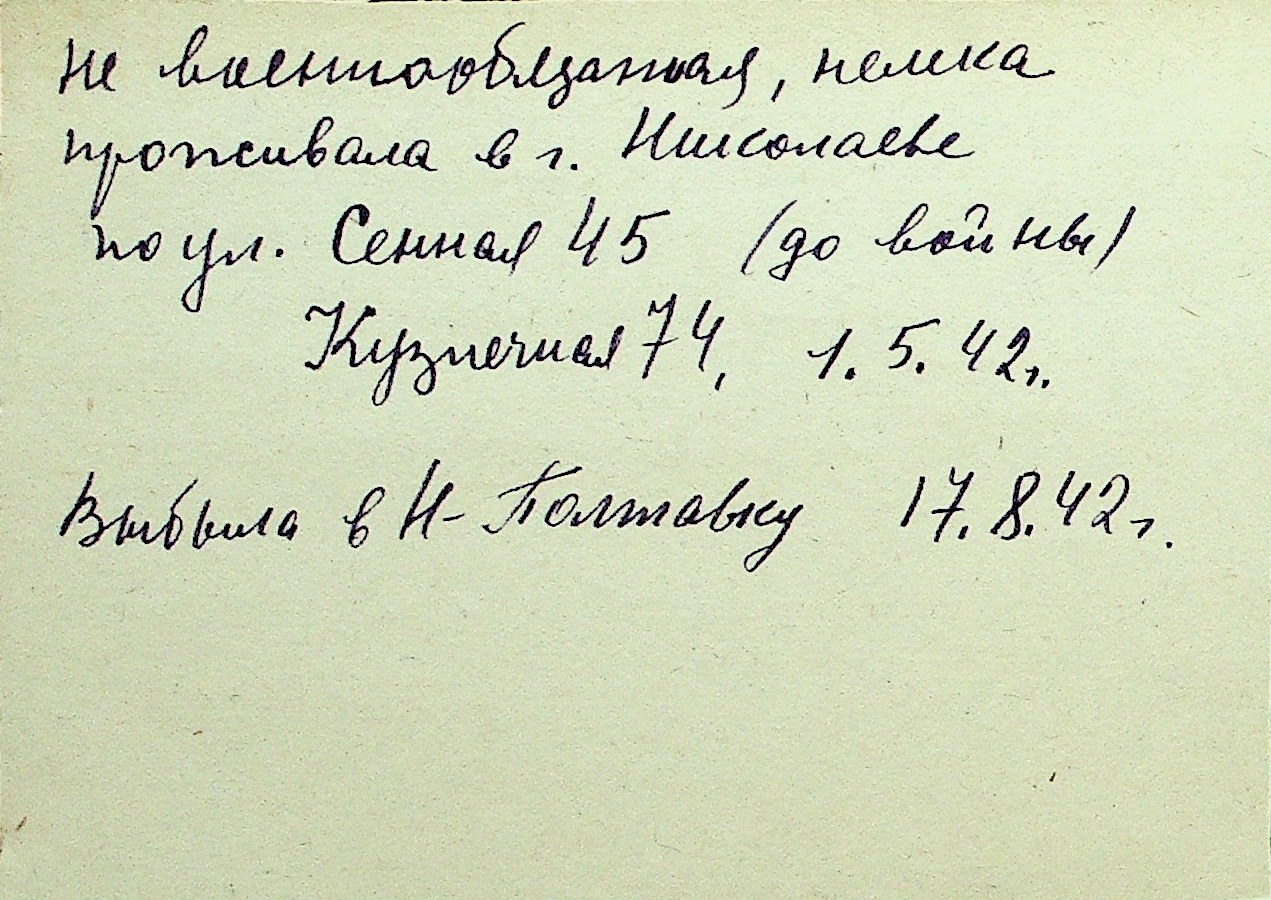 не военнообязанная, немка
проживала в г. Николаеве
по ул. Сенная 45 (до войны)
Кузнечная 74, 1.5.42г.
Выбыла в Н-Полтавку 17.8.42г.